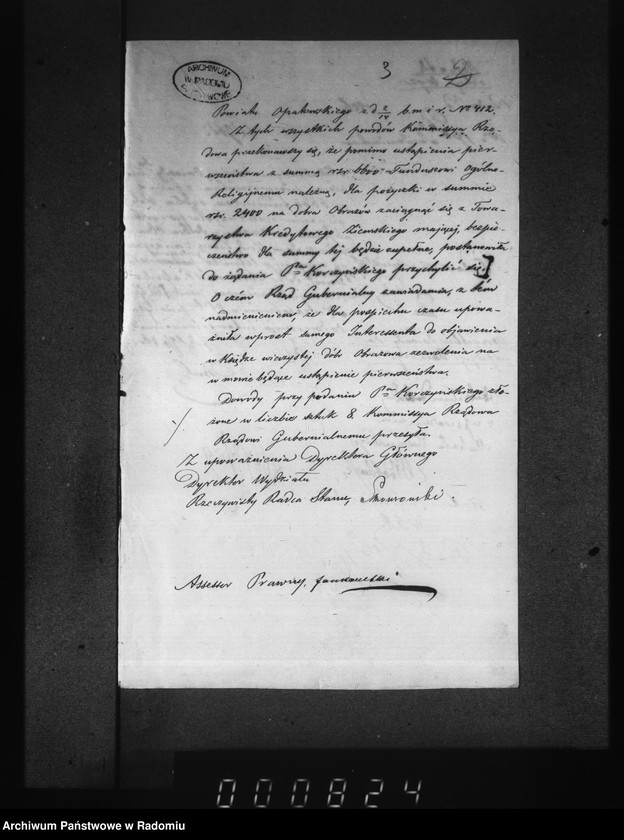 ARCHIWUM
W RADOMIU
3
Powiatu Opatowskiego z d. 2/14 b. m. i r. No 412.
Z tych wszystkich powodów Kommissya Rzą-
dowa przekonawszy się, że pomimo ustąpienia pier-
wszeństwa z summą rsr. 6600 Funduszowi Ogólno-
Religijnemu należną, dla pożyczki w summie
rsr. 2400 na dobra Obrazów zaciągnąć się z Towa-
rzystwa Kredytowego Ziemskiego mającej, bezpie-
czeństwo dla summy tej będzie zupełne, postanowiła
do żądania Pna Korczyńskiego przychylić się.]
O czém Rząd Gubernialny zawiadamia, z tém
nadmienieniem, że dla pospiechu czasu upowa-
żniła wprost samego Interessenta do objawienia
w Księdze wieczystej dóbr Obrazowa zezwolenia na
w mowie będące ustąpienie pierwszeństwa.
Dowody przy podaniu Pna Korczyńskiego zło-
żone w liczbie sztuk 8. Kommissya Rządowa
Rządowi Gubernialnemu przesyła.
Z upoważnienia Dyrektora Głównego
Dyrektor Wydziału
Rzeczywisty Radca Stanu,
Assessor Prawny,
000824
Archiwum Państwowe w Radomiu